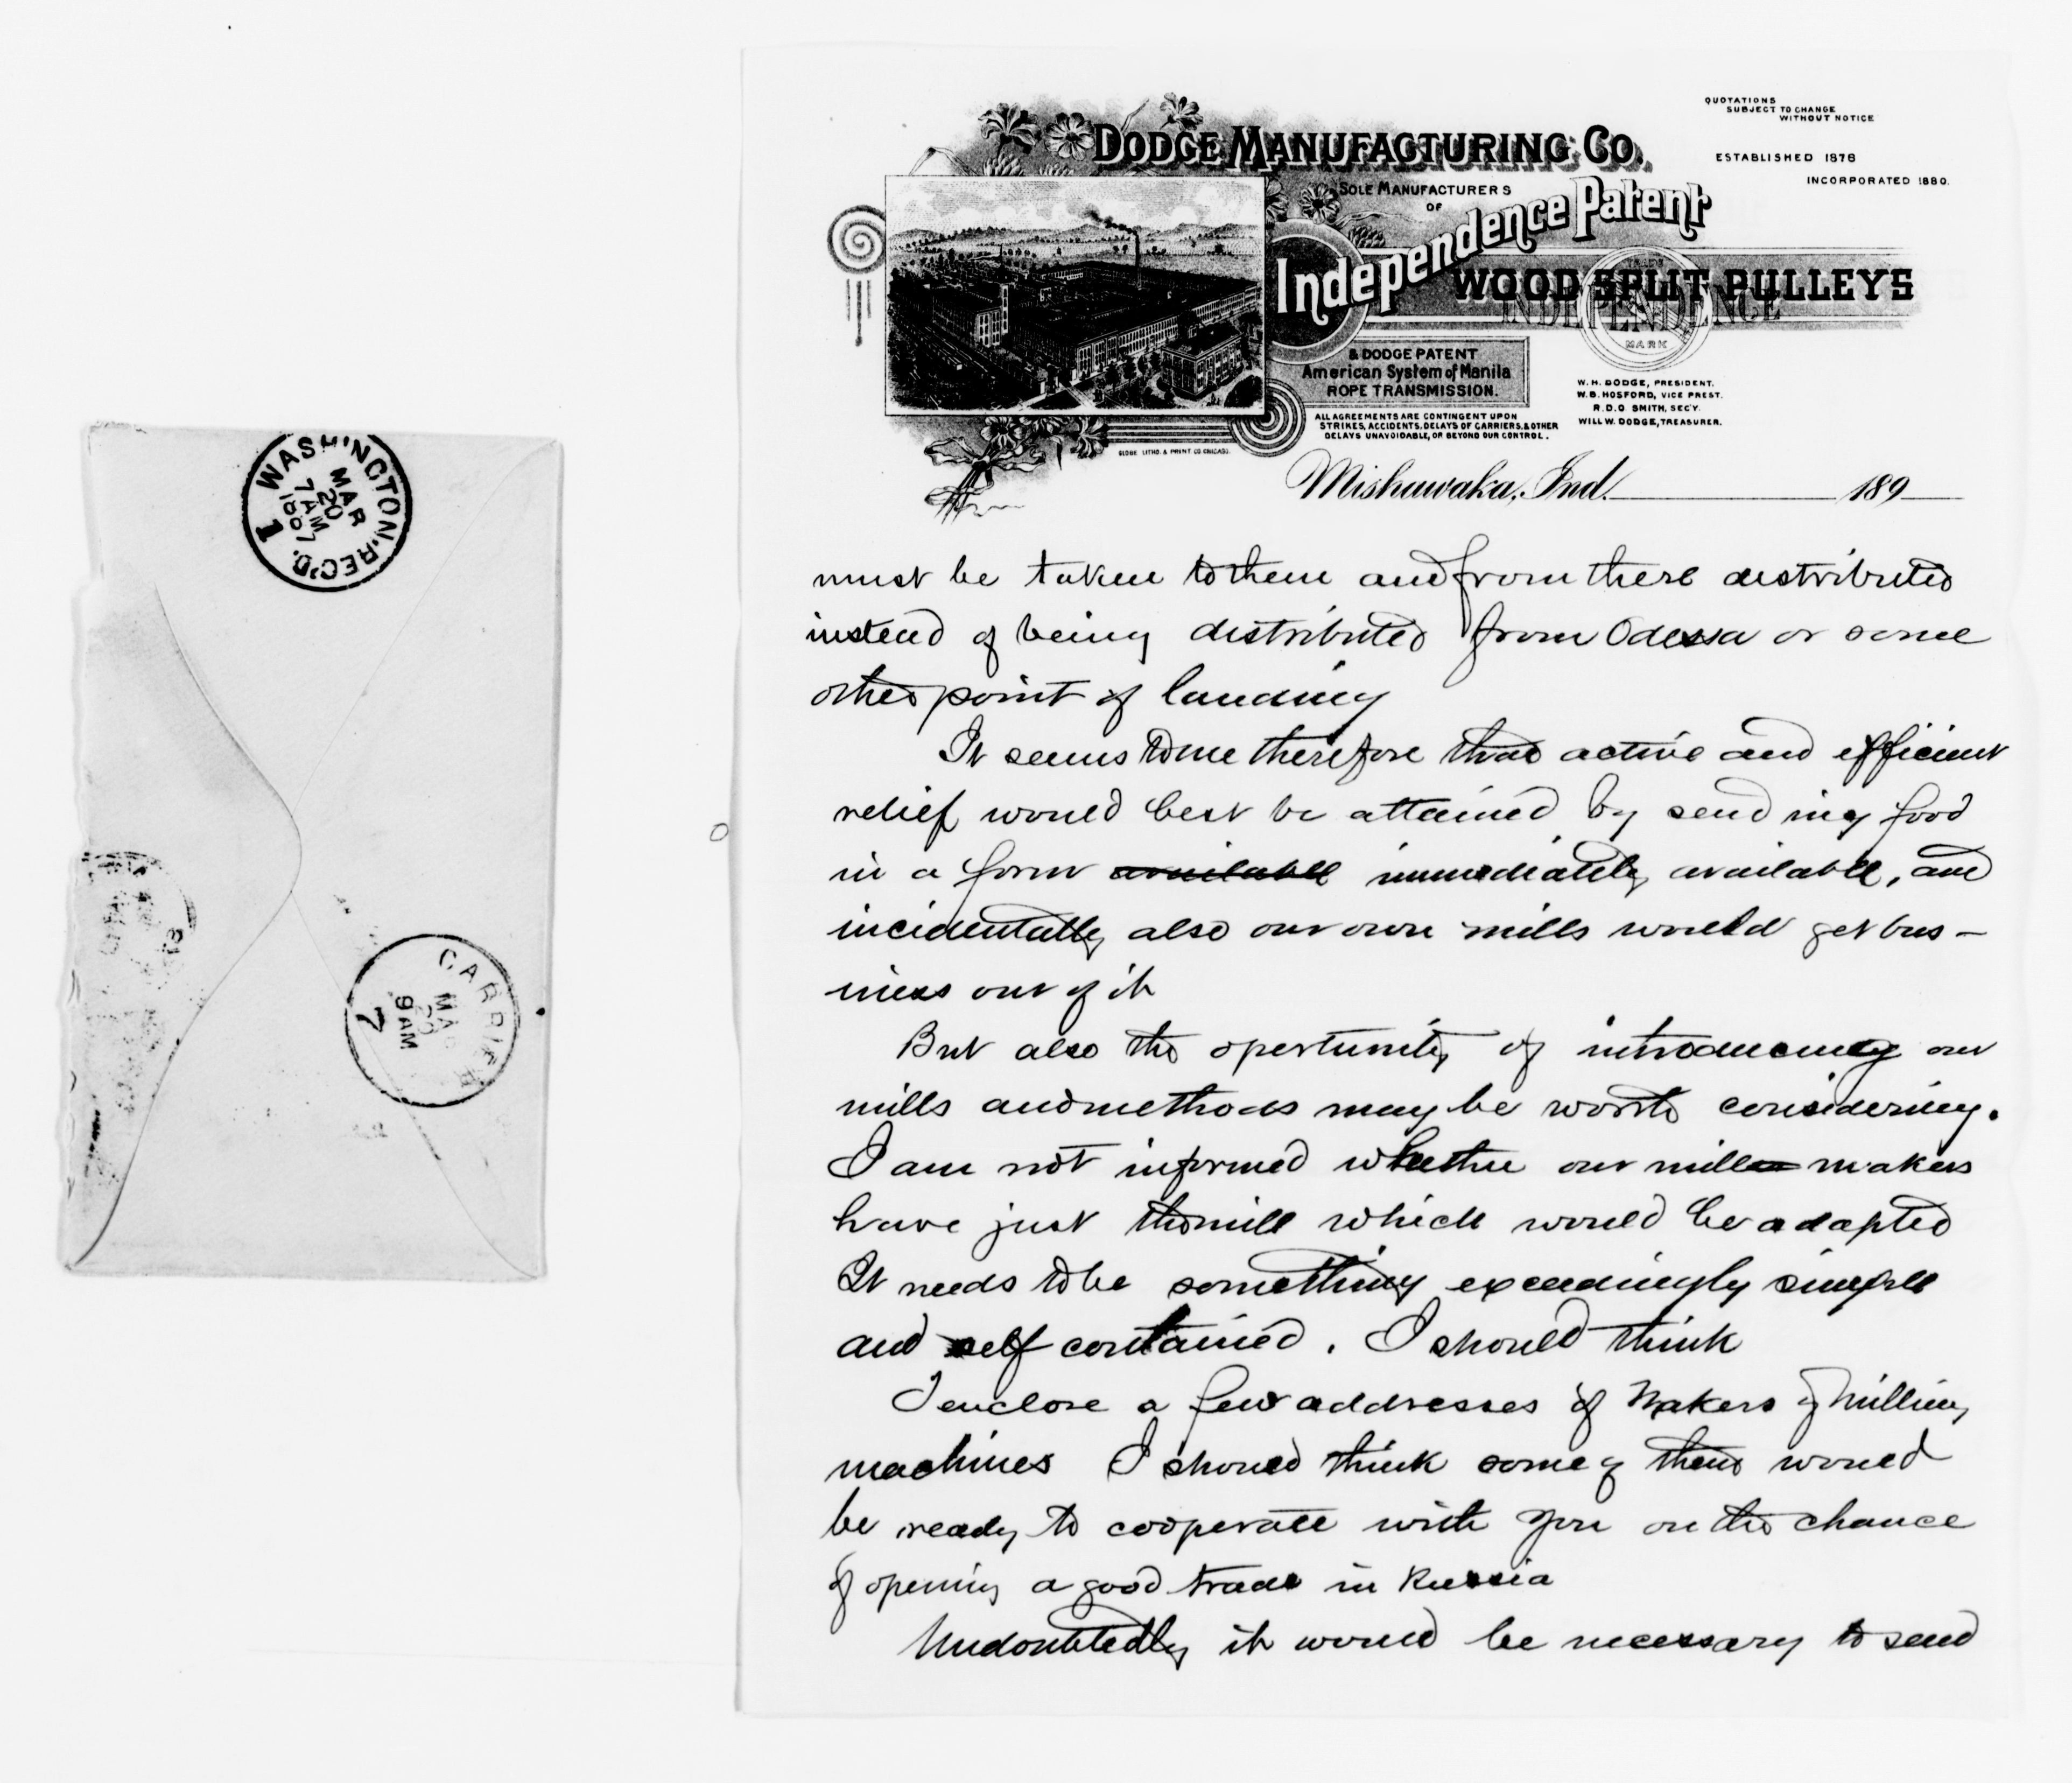 WASHINGTON, REC'D.
MAR
20
7 AM
1
CARRIER
MAR
20
9 AM
7
QUOTATIONS
SUBJECT TO CHANGE
WITHOUT NOTICE
ESTABLISHED 1878
INCORPORATED 1880.
DODGE MANUFACTURING CO.
SOLE MANUFACTURERS
OF
Independence Patent
WOOD SPLIT PULLEYS
TRADE
INDEPENDENCE
MARK
& DODGE PATENT
American System of Manila
ROPE TRANSMISSION.
ALL AGREEMENTS ARE CONTINGENT UPON
STRIKES, ACCIDENTS, DELAYS OF CARRIERS, & OTHER
DELAYS UNAVOIDABLE, OR BEYOND OUR CONTROL.
W. H. DODGE, PRESIDENT.
W. B. HOSFORD, VICE PREST.
R. D. O. SMITH, SEC'Y.
WILL W. DODGE, TREASURER.
GLOBE LITHO. & PRINT. CO. CHICAGO.
Mishawaka, Ind. 189
must be taken to them and from there distributed
instead of being distributed from Odessa or some
other point of landing
It seems to me therefore that active and efficient
relief would best be attained by sending food
in a form available immediately available, and
incidentally also our own mills would get bus-
iness out of it
But also the opertunity of introducing our
mills and methods may be worth considering.
I am not informed whether our mill makers
have just the mill which would be adapted
It needs to be something exceedingly simple
and self contained. I should think
I enclose a few addresses of Makers of Milling
machines I should think some of them would
be ready to cooperate with you on the chance
of opening a good trade in Russia
Undoubtedly it would be necessary to send